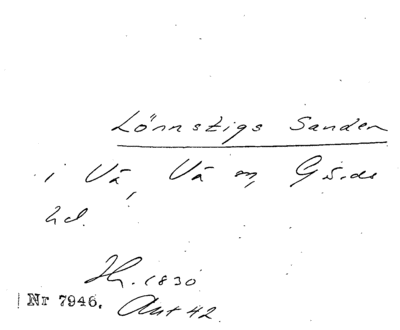 Lönnstigs Sanden
i Vä, Vä sn, Gärds
hd.
Hs. 1830
Nr 7946. Ant 42